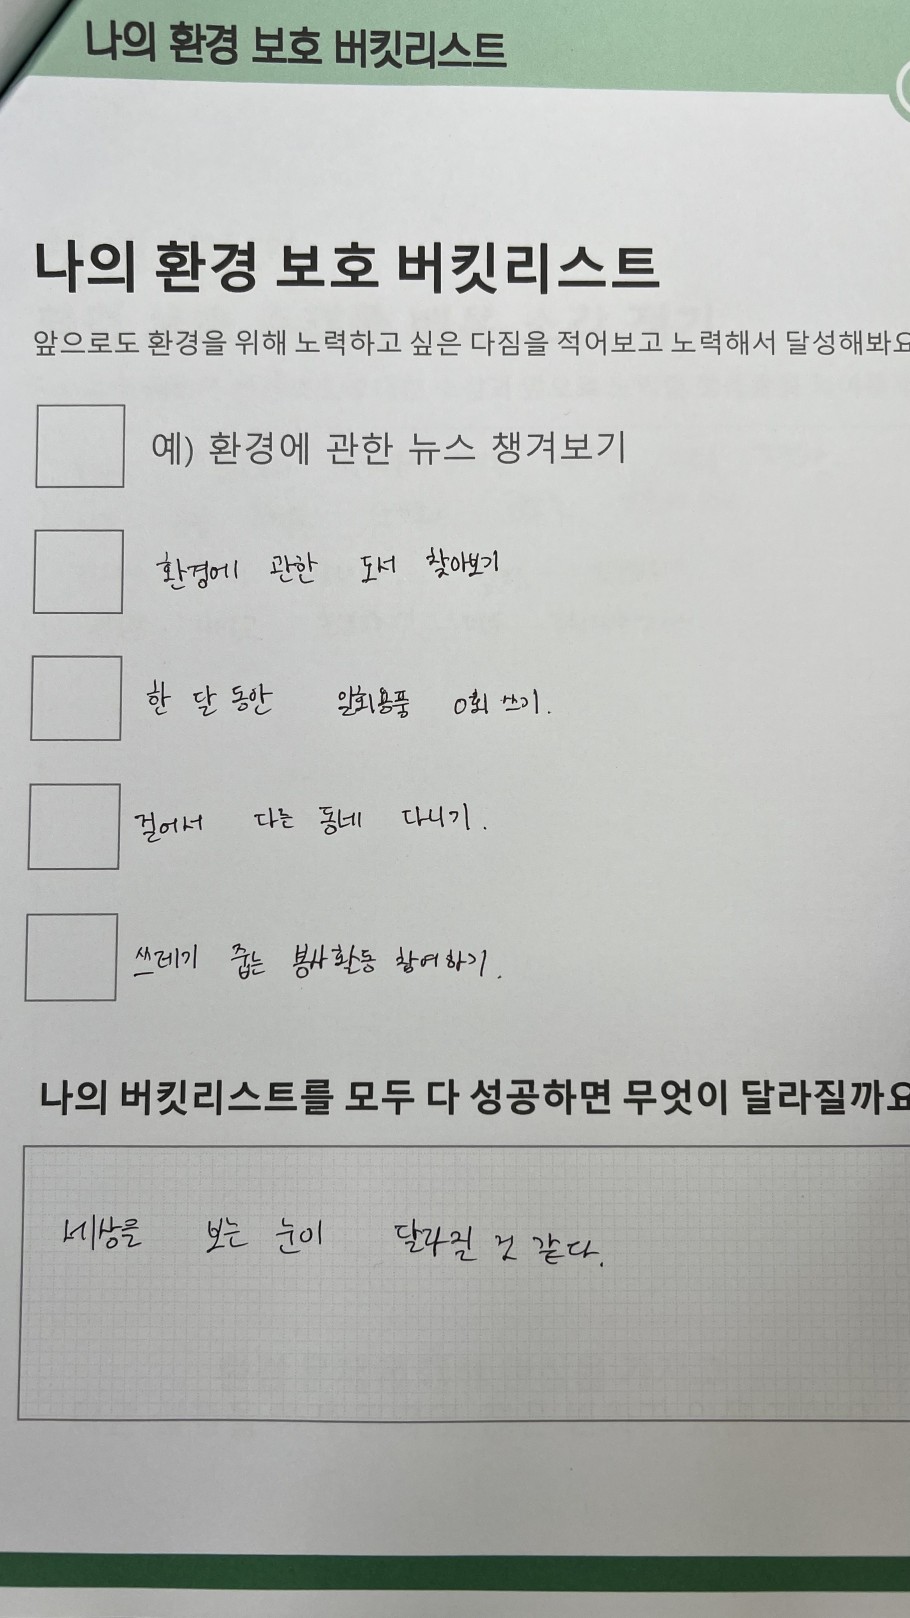 나의 환경 보호 버킷리스트
나의 환경 보호 버킷리스트
앞으로도 환경을 위해 노력하고 싶은 다짐을 적어보고 노력해서 달성해봐요
예) 환경에 관한 뉴스 챙겨보기
환경에 관한 도서 찾아보기
한 달 동안 일회용품 0회 쓰기.
걸어서 다른 동네 다니기.
쓰레기 줍는 봉사활동 참여하기.
나의 버킷리스트를 모두 다 성공하면 무엇이 달라질까요
세상을 보는 눈이 달라질 것 같다.